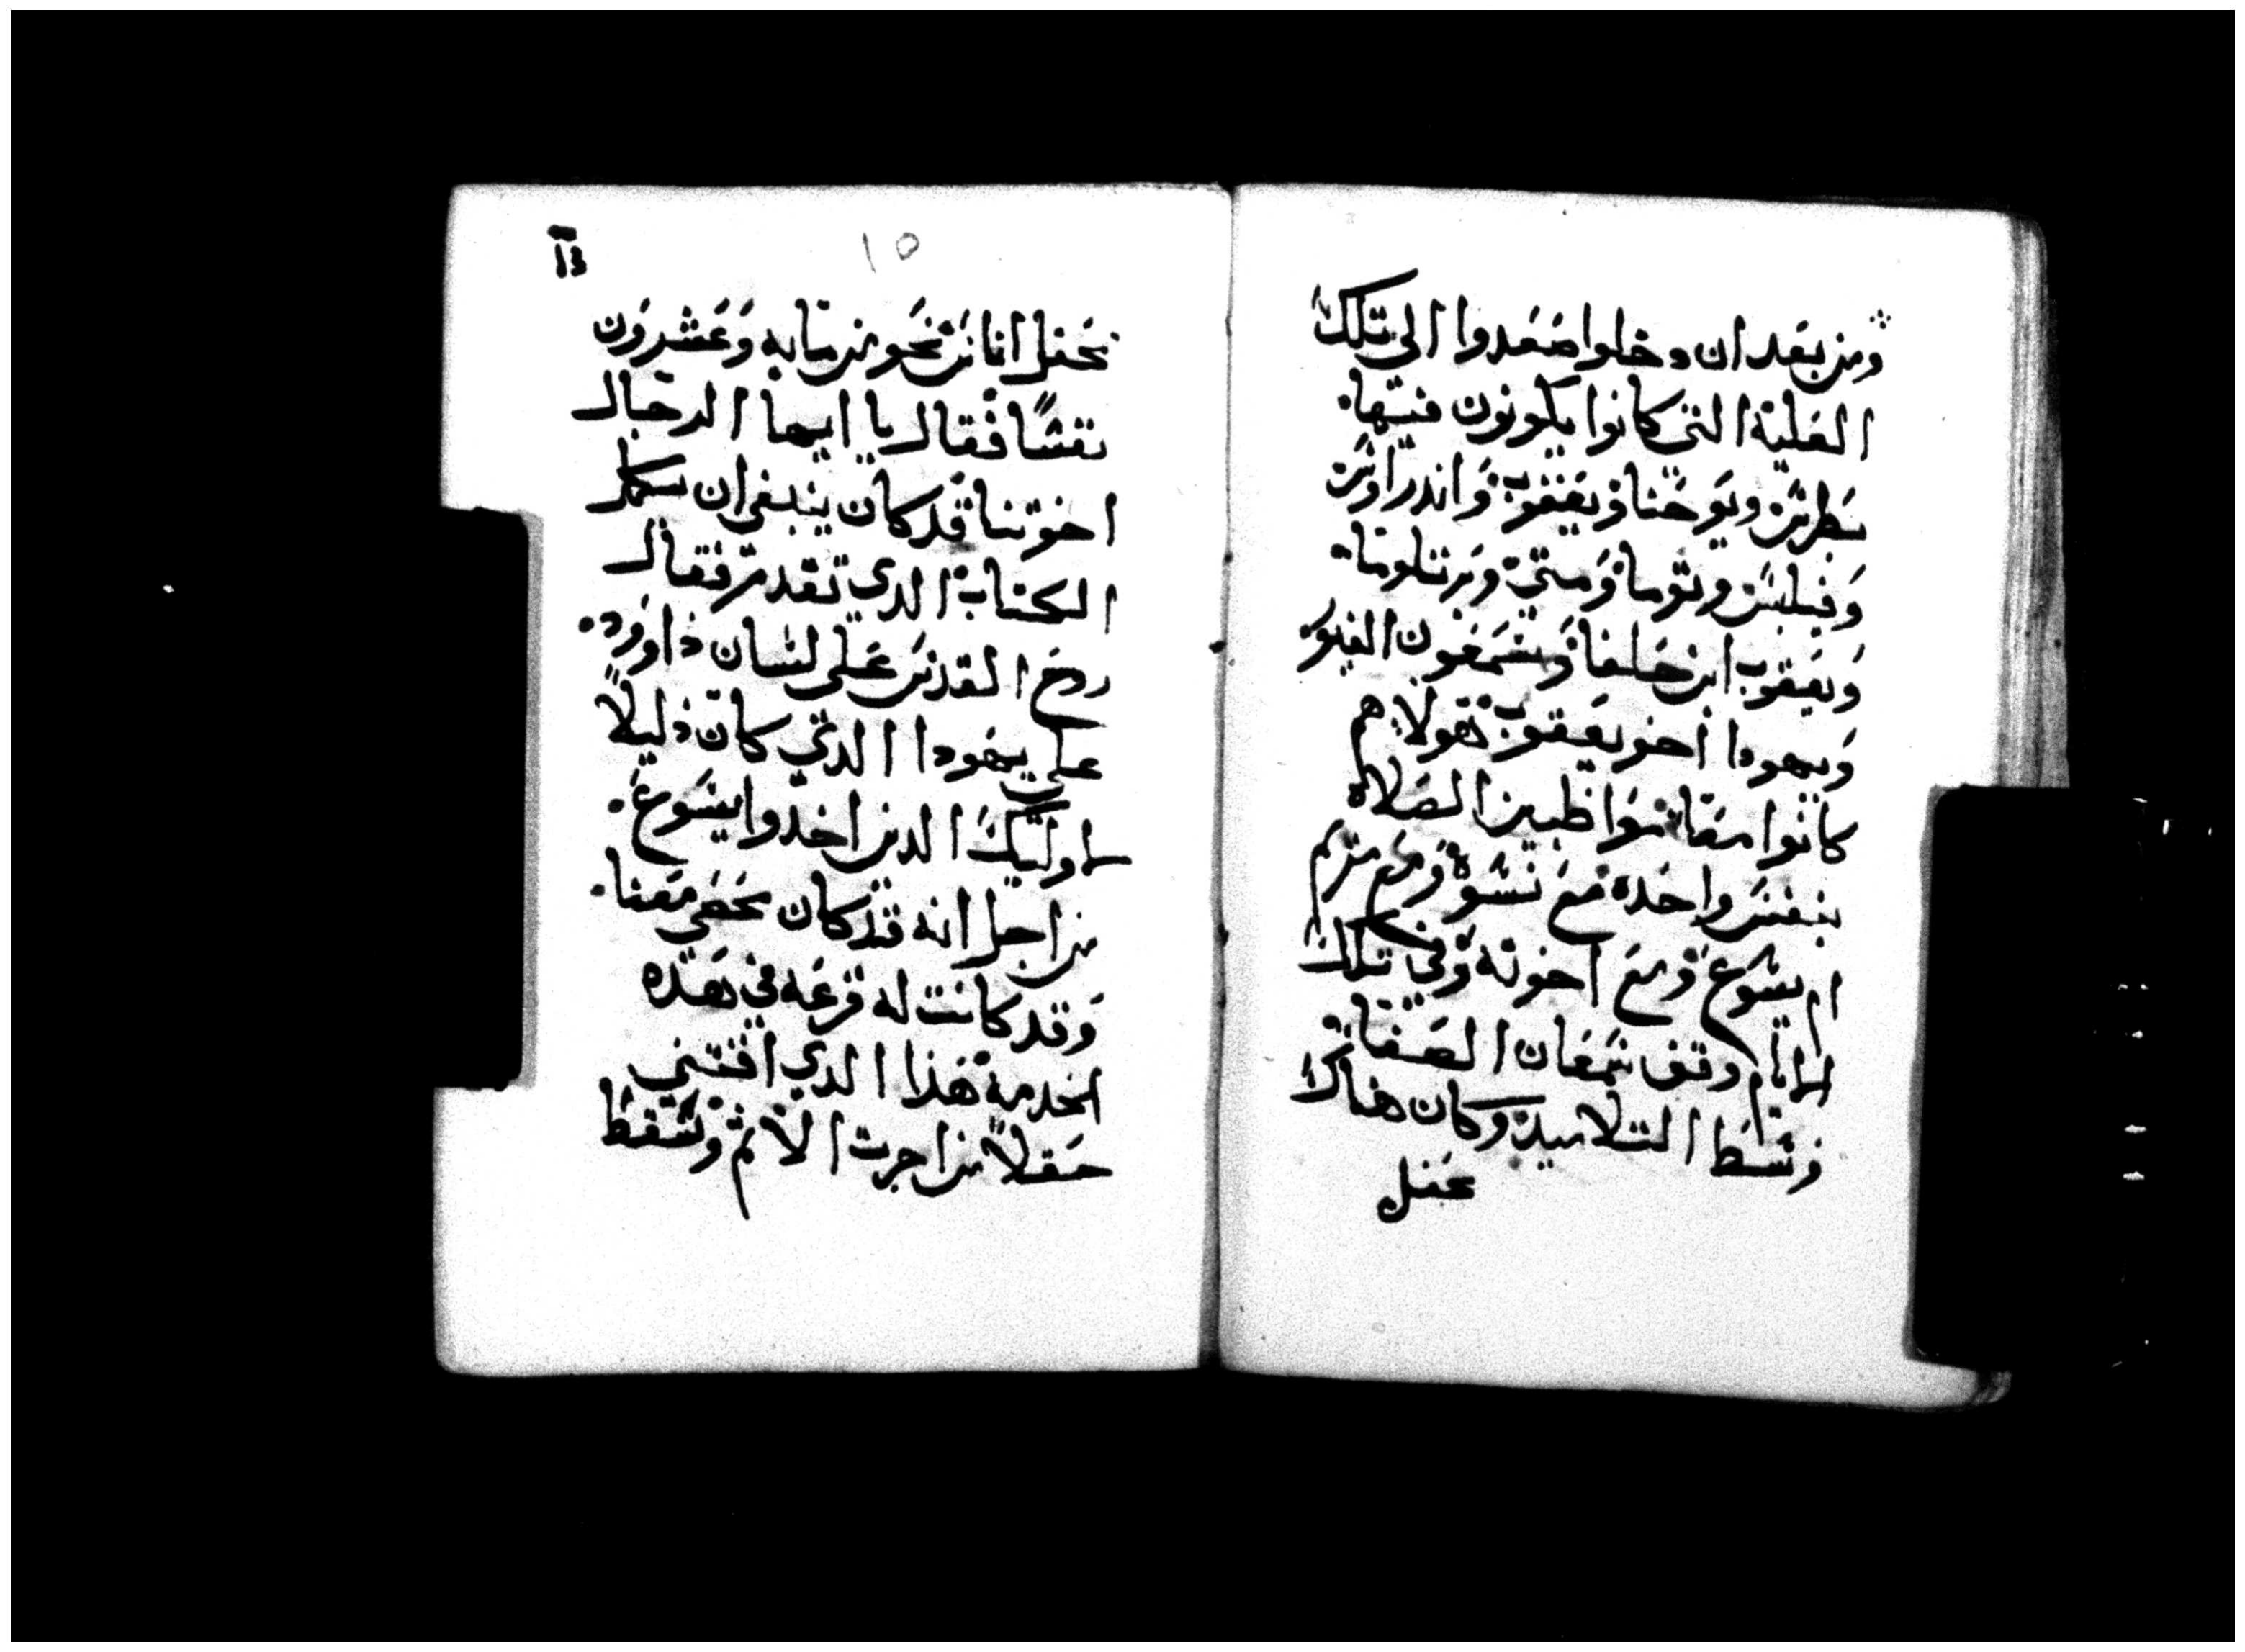 ومن بعد ان دخلوا صعدوا الى تلك
العلية التي كانوا يكونون فيها.
بطرس ويوحنا ويعقوب واندراوس
وفيلبس وتوما ومتي وبرتلوما.
ويعقوب ابن حلفا وشمعون الغيور
ويهودا اخو يعقوب هولاء هم
كانوا معا مواظبين الصلاة
بنفس واحده مع نسوة ومع مريم
ام يسوع ومع اخوته وفي تلك
الايام وقف شمعان الصفا
وسط التلاميذ وكان هناك
محفل
١٥
محفل اناس نحو من مايه وعشرون
نفسًا فقال يا ايها الرجال
اخوتنا قد كان ينبغي ان يكمل
الكتاب الدي تقدم فقال
روح القدس على لسان داوود.
علي يهودا الدي كان دليلاً
لاوليك الدين اخدوا يسوع.
من اجل انه قد كان يحصى معنا.
وقد كانت له قرعه في هده
الخدمة هذا الدي اقتني
حقلاً من اجرت الاثم وسقط